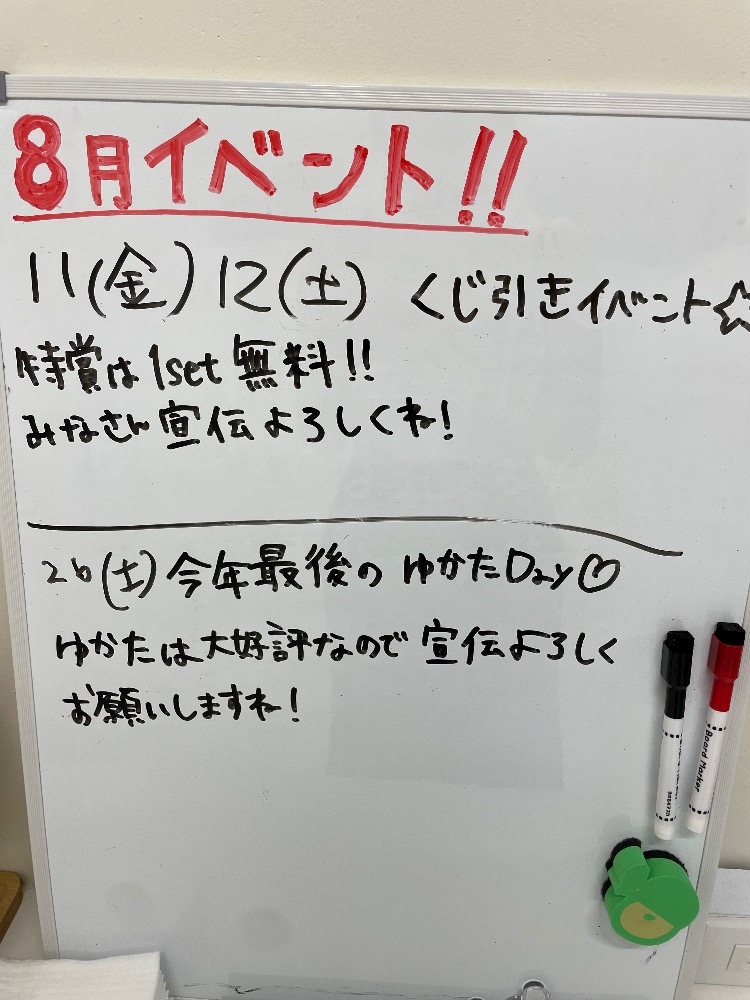 8月イベント!!
11(金) 12(土) くじ引きイベント☆
特賞は1set無料!!
みなさん宣伝よろしくね!
26(土) 今年最後の ゆかたDay♡
ゆかたは大好評なので宣伝よろしく
お願いしますね!
Board Marker